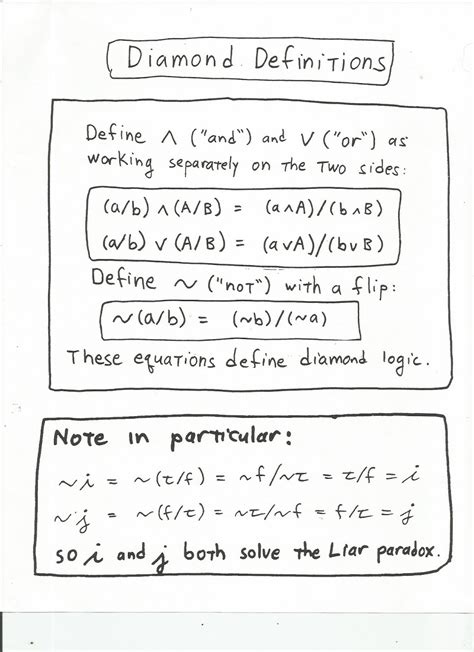 Diamond Definitions
Define ∧ ("and") and ∨ ("or") as
working separately on the two sides:
(a/b) ∧ (A/B) = (a∧A)/(b∧B)
(a/b) ∨ (A/B) = (a∨A)/(b∨B)
Define ~ ("not") with a flip:
~(a/b) = (~b)/(~a)
These equations define diamond logic.
Note in particular:
~i = ~(t/f) = ~f/~t = t/f = i
~j = ~(f/t) = ~t/~f = f/t = j
so i and j both solve the Liar paradox.